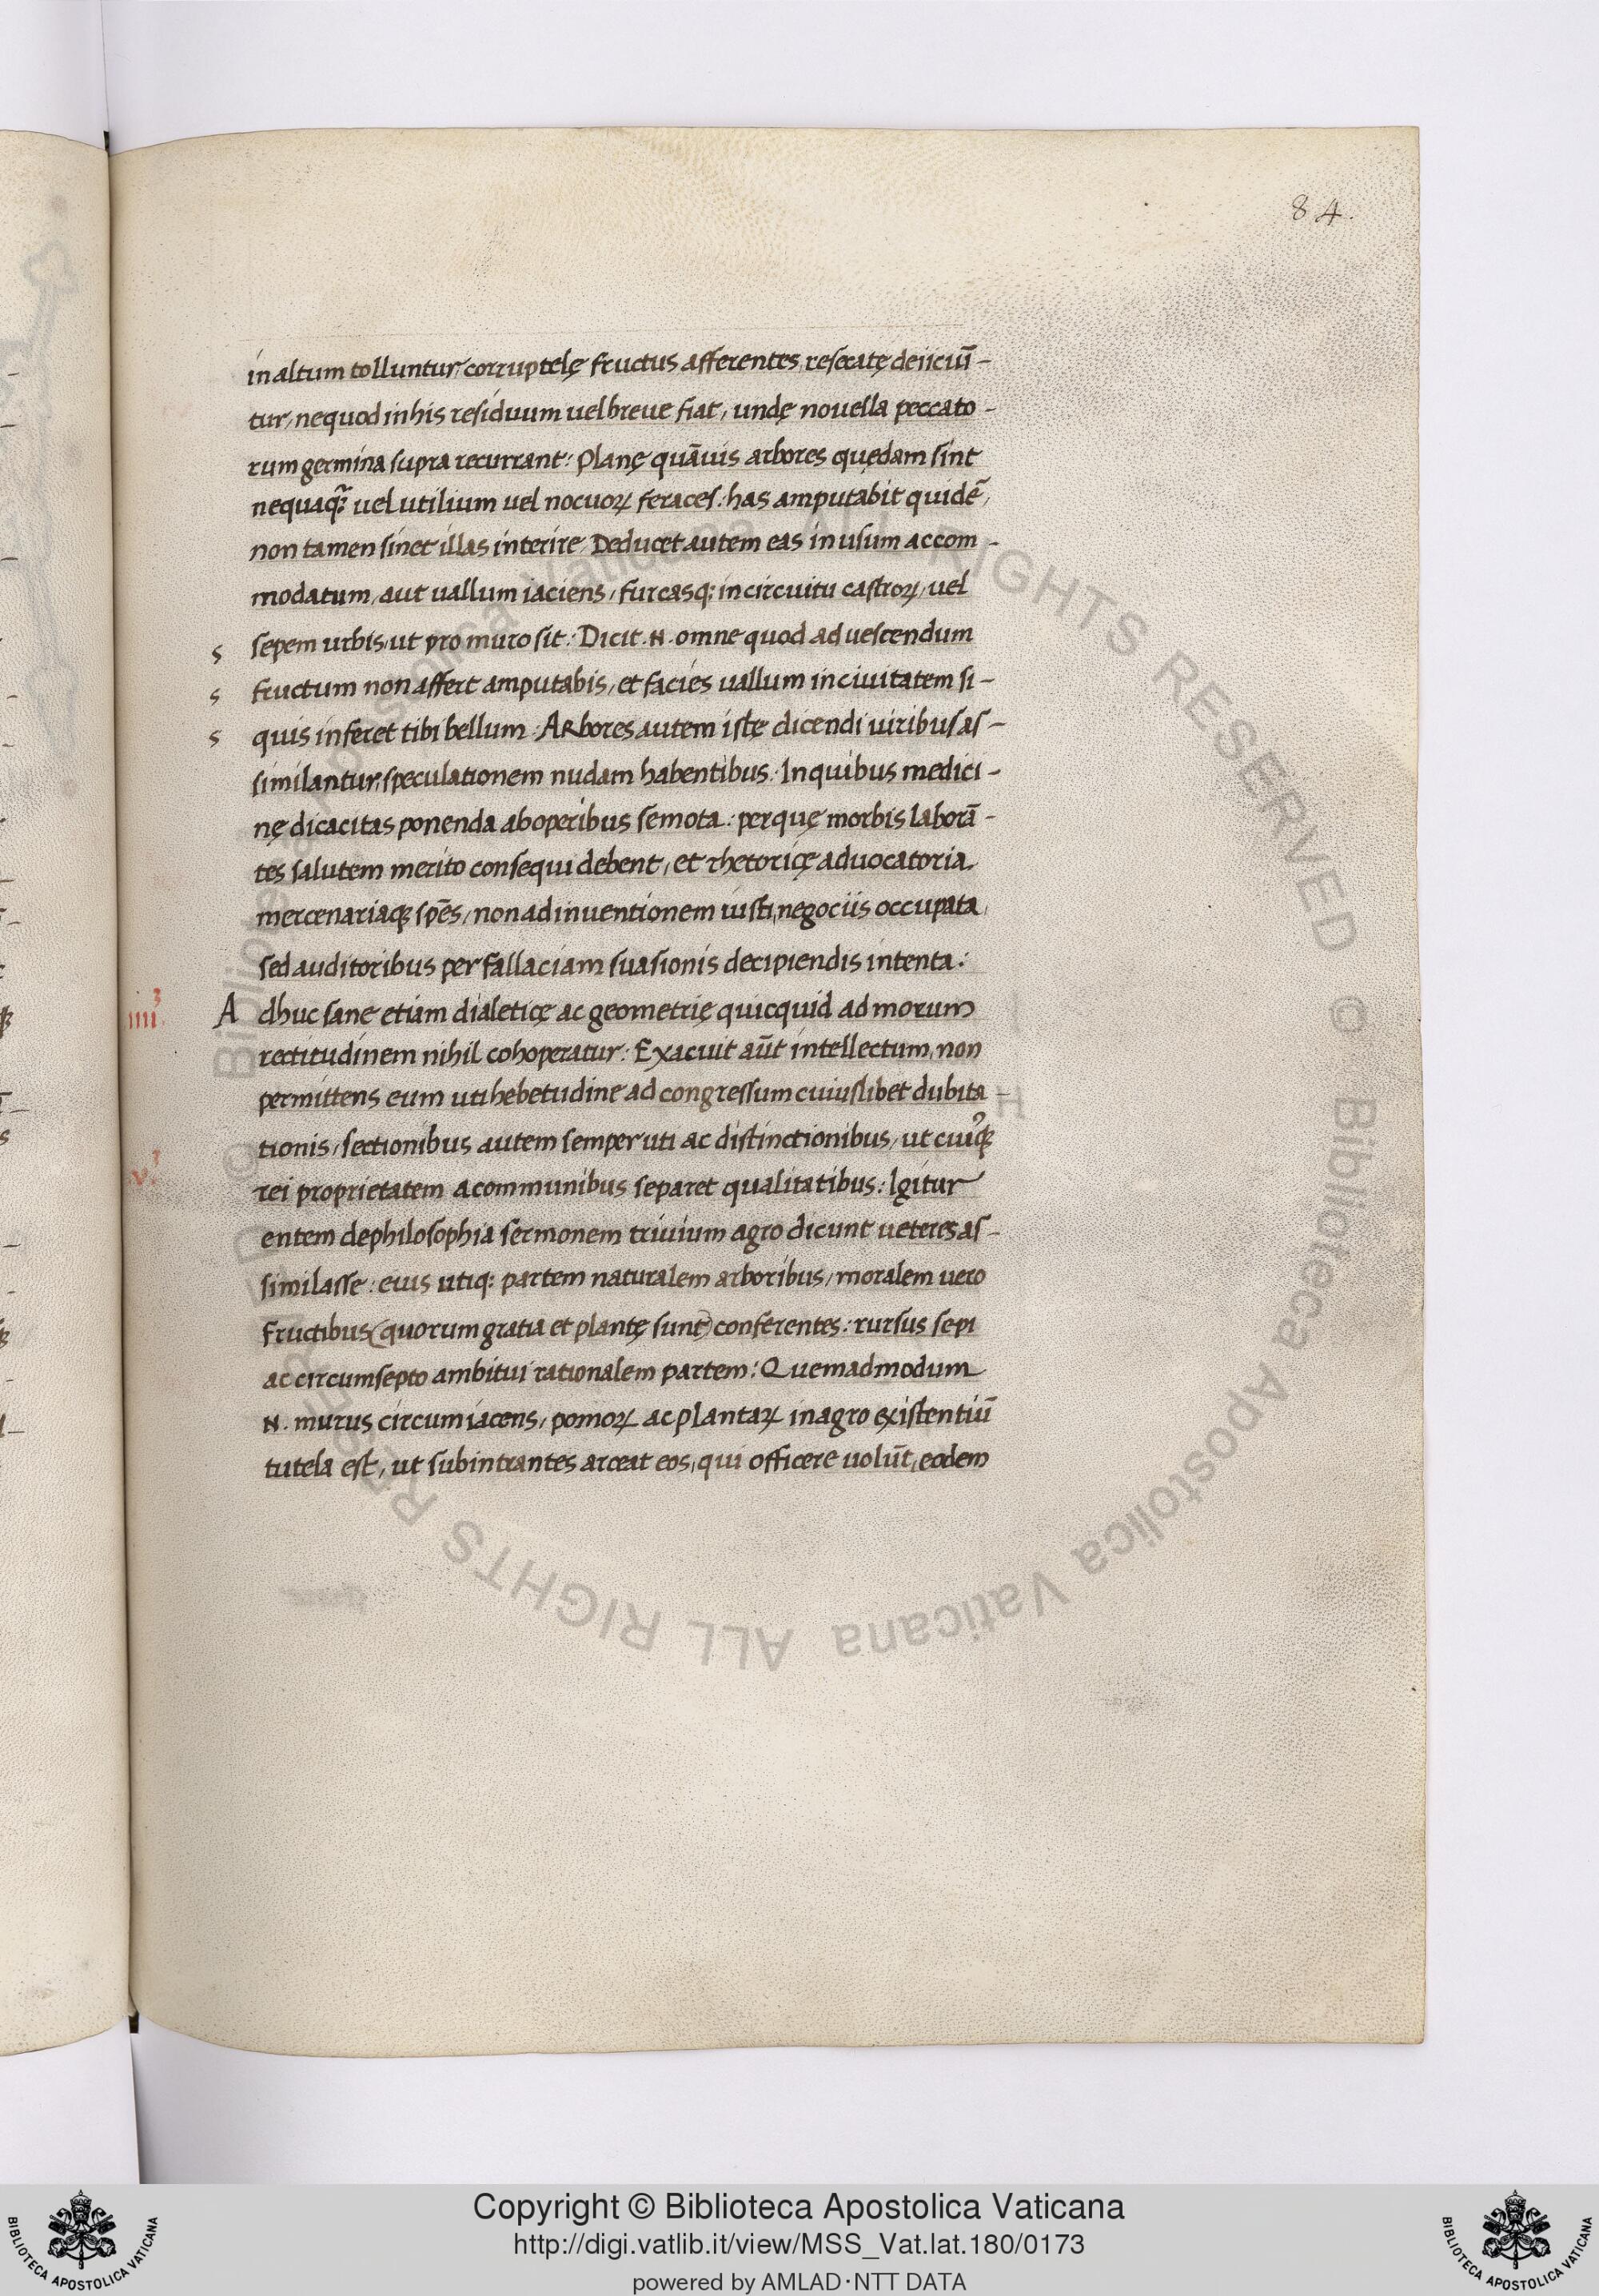 84.
in altum tolluntur, corruptelę fructus afferentes, resecatę deiiciū-
tur, ne quod in his residuum uel breue fiat, undę nouella peccato-
rum germina supra recurrant: Planę quāuis arbores quędam sint
nequaq̄ꝫ uel utilium uel nocuoꝝ feraces: has amputabit quidē,
non tamen sinet illas interire. Deducet autem eas in usum accom-
modatum, aut uallum iaciens, furcasq: in circuitu castroꝝ, uel
s sepem urbis, ut pro muro sit: Dicit .N. omne quod ad uescendum
s fructum non affert amputabis, et facies uallum in ciuitatem si-
s quis inferet tibi bellum. ARbores autem istę dicendi uiribus as-
similantur, speculationem nudam habentibus: In quibus medici-
nę dicacitas ponenda ab operibus semota: per quę morbis laborā-
tes salutem merito consequi debent, et rhetoricę aduocatoria
mercenariaqꝫ spēs, non ad inuentionem iusti, negociis occupata,
sed auditoribus per fallaciam suasionis decipiendis intenta:
iiii. Adhuc sane etiam dialeticę ac geometrię quicquid ad morum
rectitudinem nihil cohoperatur: Exacuit aūt intellectum, non
permittens eum uti hebetudine ad congressum cuiuslibet dubita-
tionis, sectionibus autem semper uti ac distinctionibus, ut cuiqꝫ
v. rei proprietatem a communibus separet qualitatibus: Igitur
entem de philosophia sermonem triuium agro dicunt ueteres as-
similasse: eius utiq: partem naturalem arboribus, moralem uero
fructibus (quorum gratia et plantę sunt) conferentes: rursus sepi
ac circumsepto ambitui rationalem partem: Quemadmodum
.N. murus circumiacens, pomoꝝ ac plantaꝝ in agro existentiū
tutela est, ut subintrantes arceat eos, qui officere uolūt, eodem
© Biblioteca Apostolica Vaticana ALL RIGHTS RESERVED © Biblioteca Apostolica Vaticana ALL RIGHTS RESERVED
Copyright © Biblioteca Apostolica Vaticana
http://digi.vatlib.it/view/MSS_Vat.lat.180/0173
powered by AMLAD·NTT DATA
BIBLIOTECA APOSTOLICA VATICANA
BIBLIOTECA APOSTOLICA VATICANA